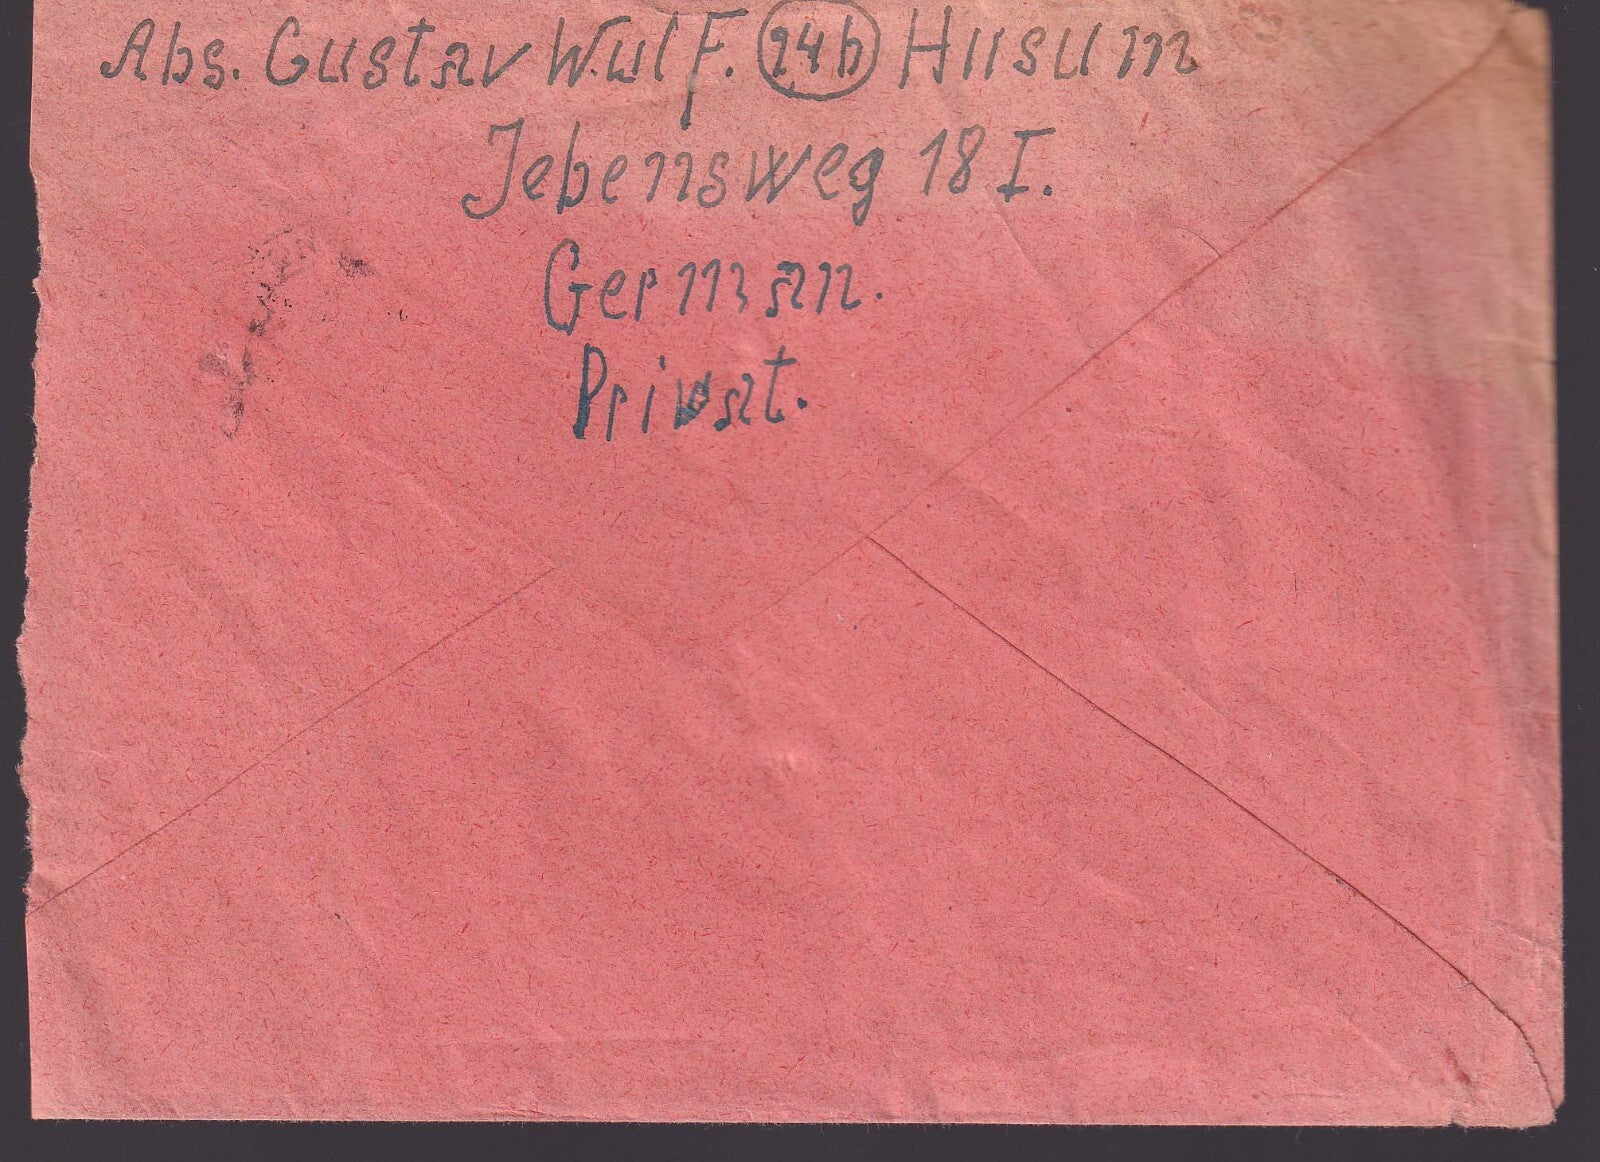 Abs. Gustav Wulf. 24b Husum
Jebensweg 18 I.
German.
Privat.